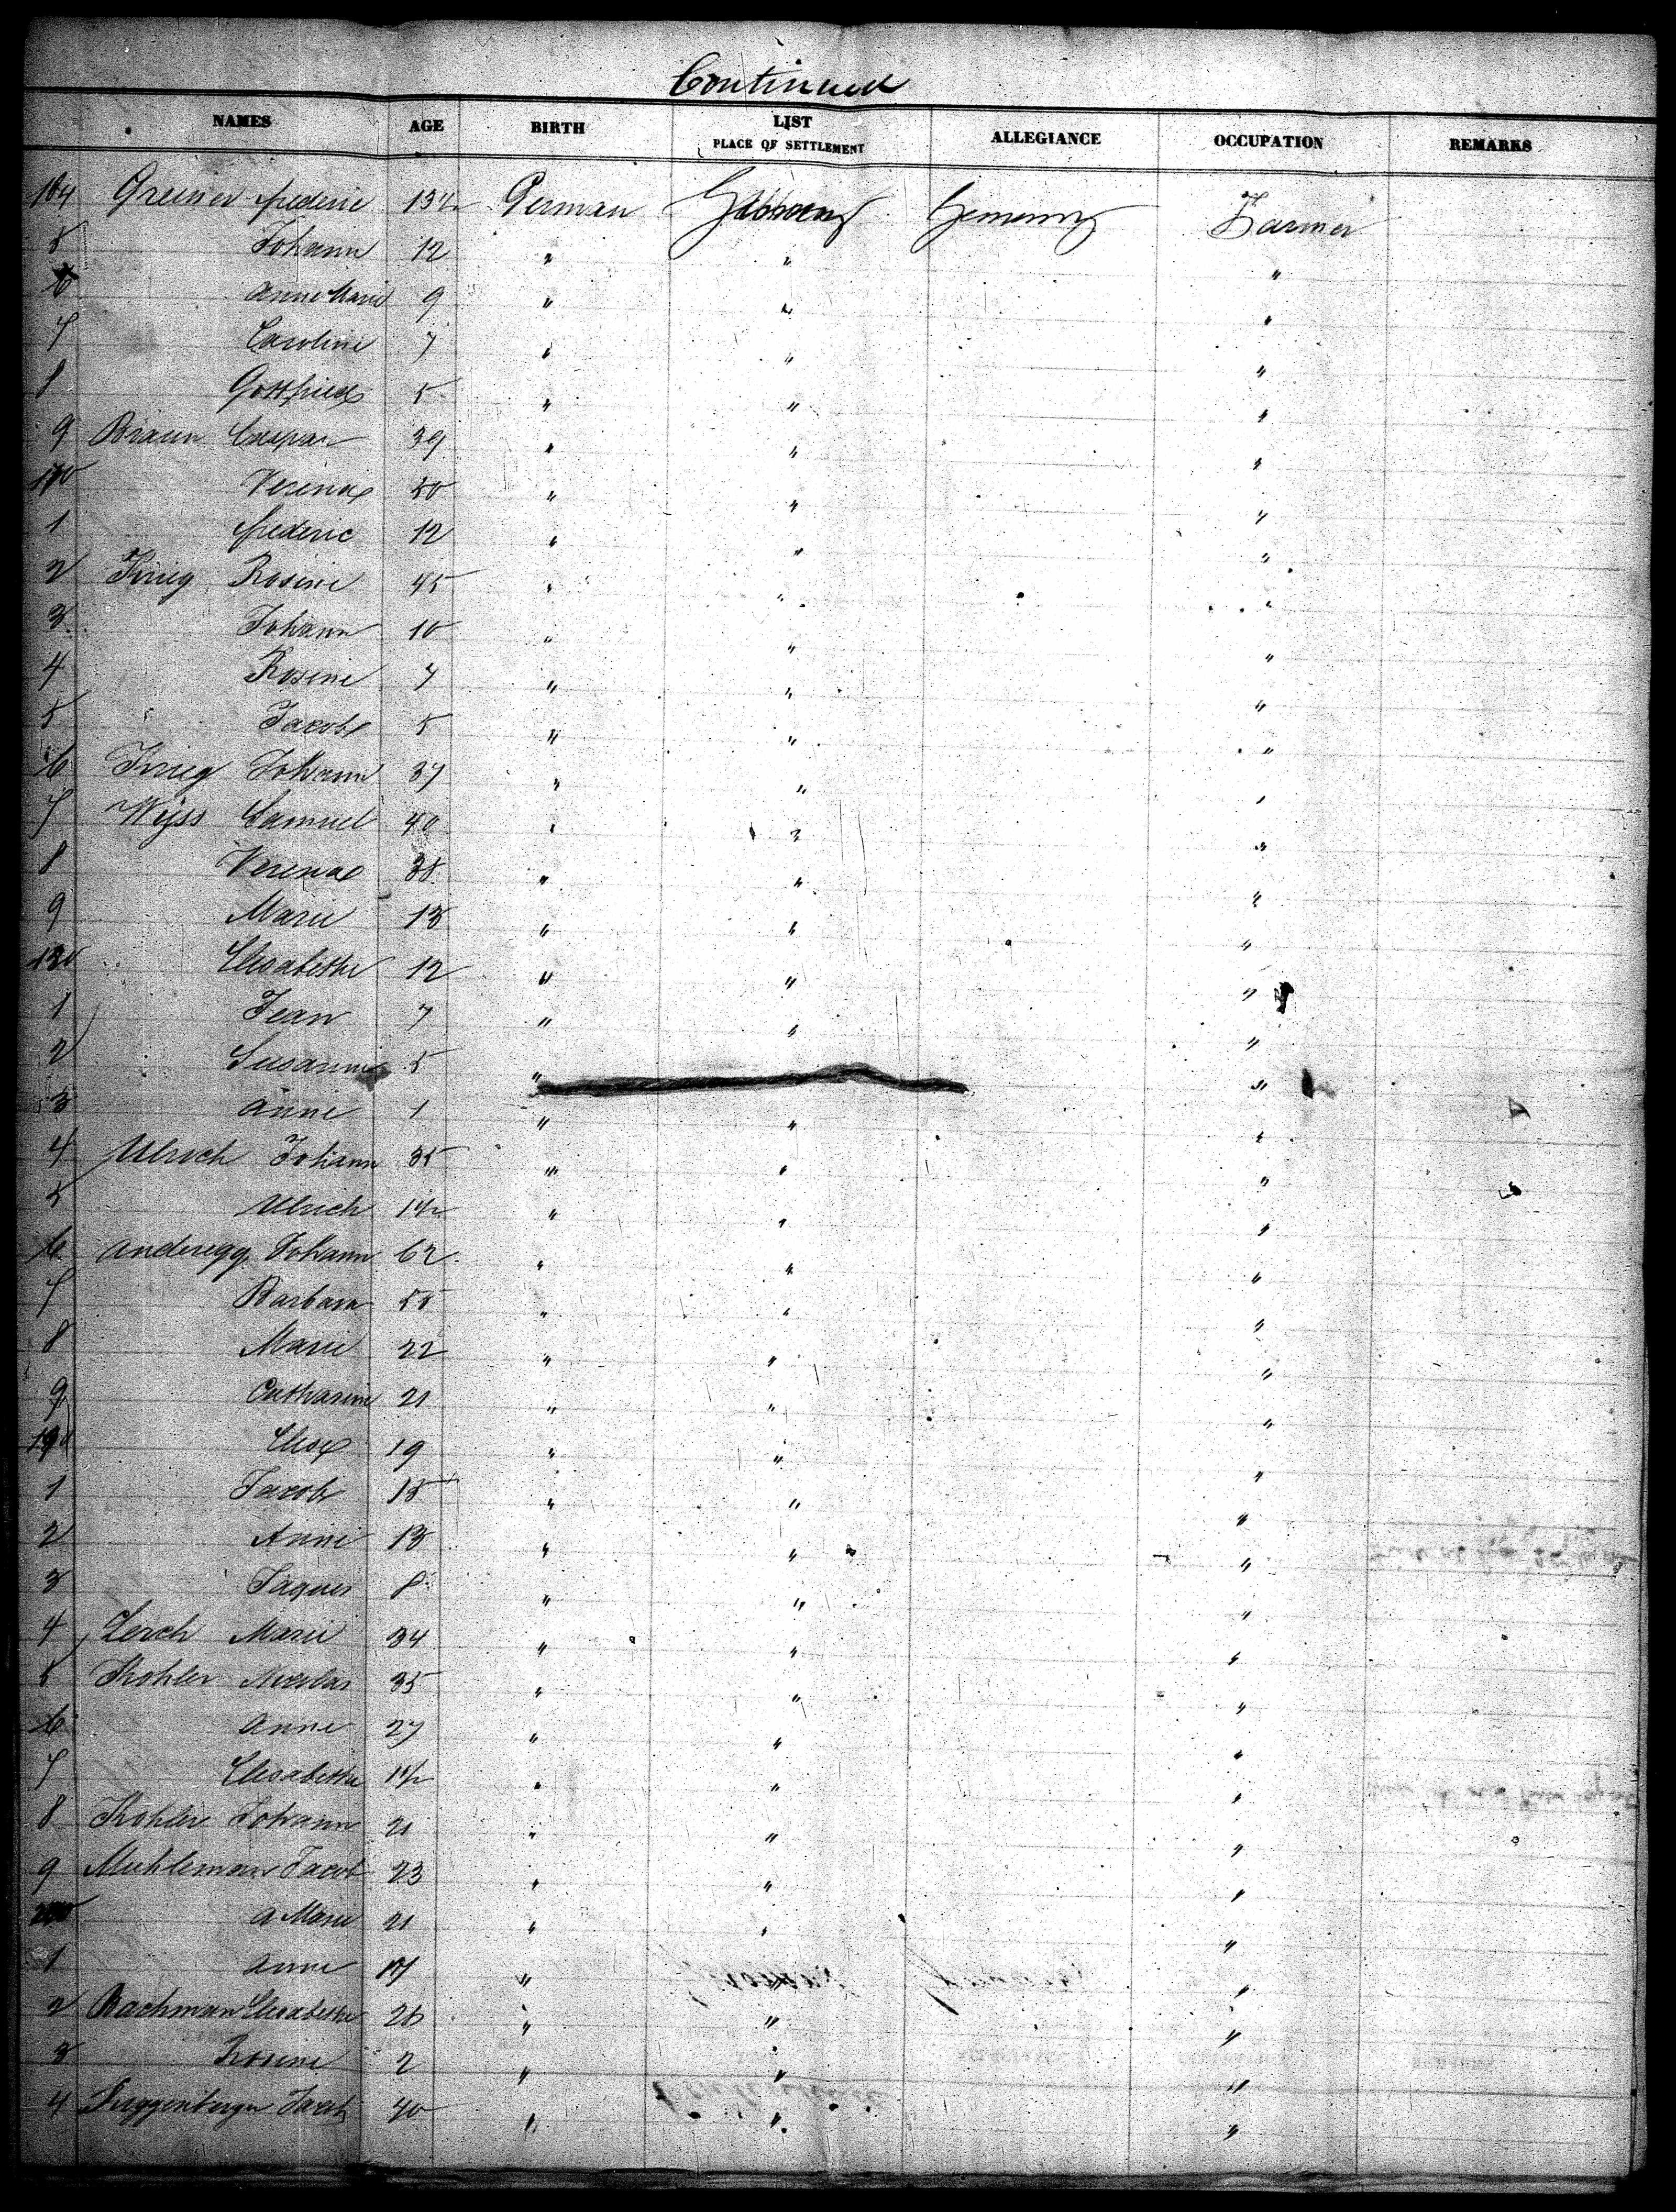 Continued
NAMES AGE BIRTH LIST PLACE OF SETTLEMENT ALLEGIANCE OCCUPATION REMARKS
Greiner frederic German Germany Farmer
5 Johann 12 " " "
6 Anne Marie 9 " " "
7 Caroline 7 " " "
8 Gottfried 5 " " "
9 Braun Caspar 39 " " "
Verena 50 " " "
1 frederic 12 " " "
2 Krieg Rosine 45 " " "
3 Johann 10 " " "
4 Rosine 7 " " "
5 Jacob 5 " " "
6 Krieg Johann 37 " " "
7 Wyss Samuel 40 " " "
8 Verena 38 " " "
9 Marie 13 " " "
Elisabethe 12 " " "
1 Jean 7 " " "
2 Susanne 5 " "
3 Anne 1 " " "
4 Ulrich Johann 35 " " "
5 Ulrich " " "
6 Anderegg Johann 62 " " "
7 Barbara 55 " " "
8 Marie 22 " " "
9 Catharine 21 " " "
Elise 19 " " "
1 Jacob 15 " " "
2 Anne 13 " " "
3 Jaques 8 " " "
4 Lerch Marie 34 " " "
5 Kohler Nicolas 35 " " "
6 Anne 27 " " "
7 Elisabethe " " "
8 Kohler Johann 21 " " "
9 Muhleman Jacob 23 " " "
200 A Marie 21 " " "
1 Anne " " "
2 Bachman Elisabethe 26 " " "
3 Rosine 2 " " "
4 Guggenberger Jacob 40 " " "